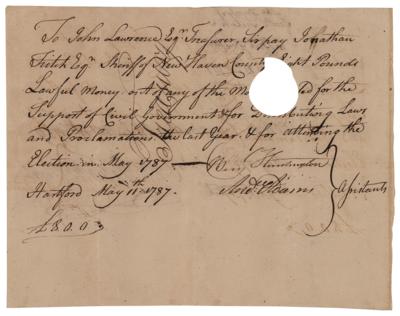 To John Lawrence Esqr. Treasurer, Sir pay Jonathan
Fitch Esqr. Sheriff of New Haven County Eight Pounds
Lawful Money out of any of the Mo ed for the
Support of Civil Government & for Distributing Laws
and Proclamations the last Year, & for attending the
Election in May 1787 — Benj. Huntington
Hartford May 11th. 1787. Andw. Adams Assistants
£8.0.0